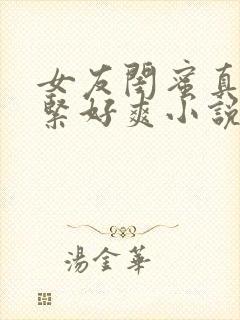 女友閨蜜真
緊好爽小說
湯金華